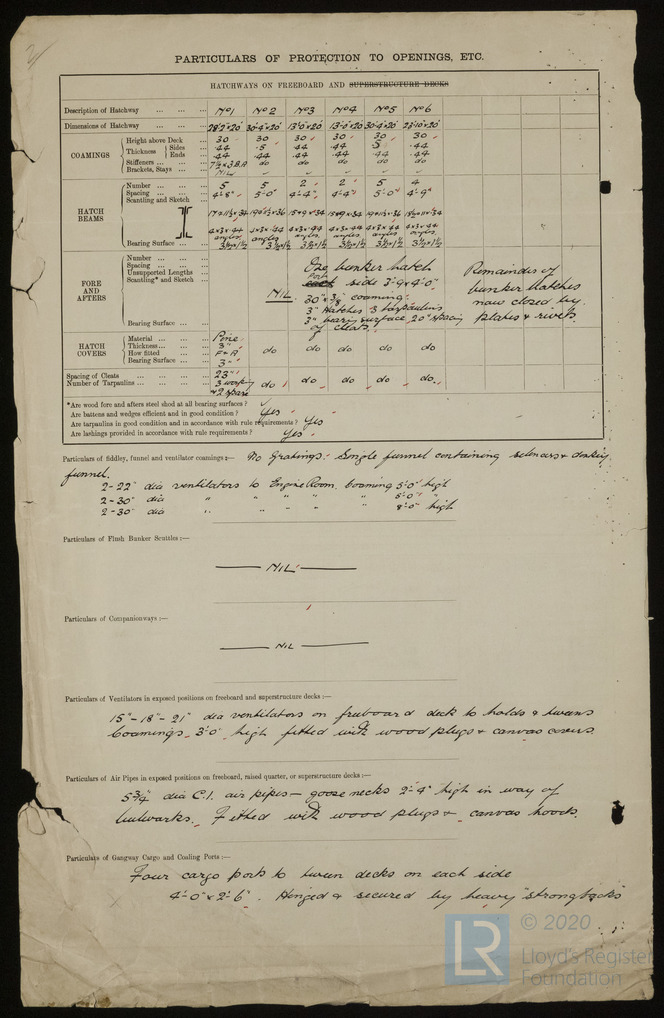 PARTICULARS OF PROTECTION TO OPENINGS, ETC.
HATCHWAYS ON FREEBOARD AND SUPERSTRUCTURE DECKS
Description of Hatchway ... ... ... No 1 No 2 No 3 No 4 No 5 No 6
Dimensions of Hatchway ... ... ... 28'2"×20' 30'-4"×20' 13'0"×20' 13'-0"×20' 30'-4"×20' 23'10"×20'
COAMINGS
Height above Deck ... 30 30 30 30 30 30
Thickness Sides ... 44 .5 .44 .44 .5 .44
Ends ... .44 .44 .44 .44 .44 .44
Stiffeners ... ... ... do do do do do
Brackets, Stays ... ... NIL
HATCH BEAMS
Number ... ... ... 5 5 2 2 5 4
Spacing ... ... ... 4'-8" 5'-0" 4'-4" 4'-4" 5'-0" 4'-9"
Scantling and Sketch
4×3×.44 4×3×.44 4×3×.44 4×3×.44 4×3×.44 4×3×.44
angles angles angles angles angles angles
Bearing Surface ... ... 3½×1½ 3½×1½ 3½×1½ 3½×1½ 3½×1½ 3½×1½
FORE AND AFTERS
Number ... ... ...
Spacing ... ... ...
Unsupported Lengths ...
Scantling* and Sketch
Bearing Surface ... ...
NIL
One bunker hatch
Port
each side 3'-9"×4'-0"
30" × 3/8" coaming.
3" Hatches 3 tarpaulins
3" bearing surface, 20" spacing
of cleats.
Remainder of
bunker hatches
now closed by
plates & rivets
HATCH COVERS
Material ... ... ... Pine
Thickness ... ... ... 3" do do do do do
How fitted ... ... ... F & A
Bearing Surface ... ... 3"
Spacing of Cleats ... ... ... 23"
Number of Tarpaulins ... ... ... 3 working do do do do do
& 2 spare
*Are wood fore and afters steel shod at all bearing surfaces ?
Are battens and wedges efficient and in good condition ? Yes
Are tarpaulins in good condition and in accordance with rule requirements ? Yes
Are lashings provided in accordance with rule requirements ? Yes
Particulars of fiddley, funnel and ventilator coamings:— No Gratings. Single funnel containing silencers & donkey
funnel.
2-22" dia ventilators to Engine Room. Coaming 5'-0" high
2-30" dia " " " " " 5'-0" "
2-30" dia " " " " " 8'-0" high
Particulars of Flush Bunker Scuttles:—
NIL
Particulars of Companionways :—
NIL
Particulars of Ventilators in exposed positions on freeboard and superstructure decks :—
15"-18"-21" dia ventilators on freeboard deck to holds & tweens
Coamings 3'-0" high fitted with wood plugs & canvas covers.
Particulars of Air Pipes in exposed positions on freeboard, raised quarter, or superstructure decks :—
5¾" dia C.I. air pipes — goose necks 2'-4" high in way of
bulwarks. Fitted with wood plugs & canvas hoods.
Particulars of Gangway Cargo and Coaling Ports :—
Four cargo ports to tween decks on each side
4'-0" × 2'-6". Hinged & secured by heavy "strongbacks"
LR
© 2020
Lloyd's Register
Foundation